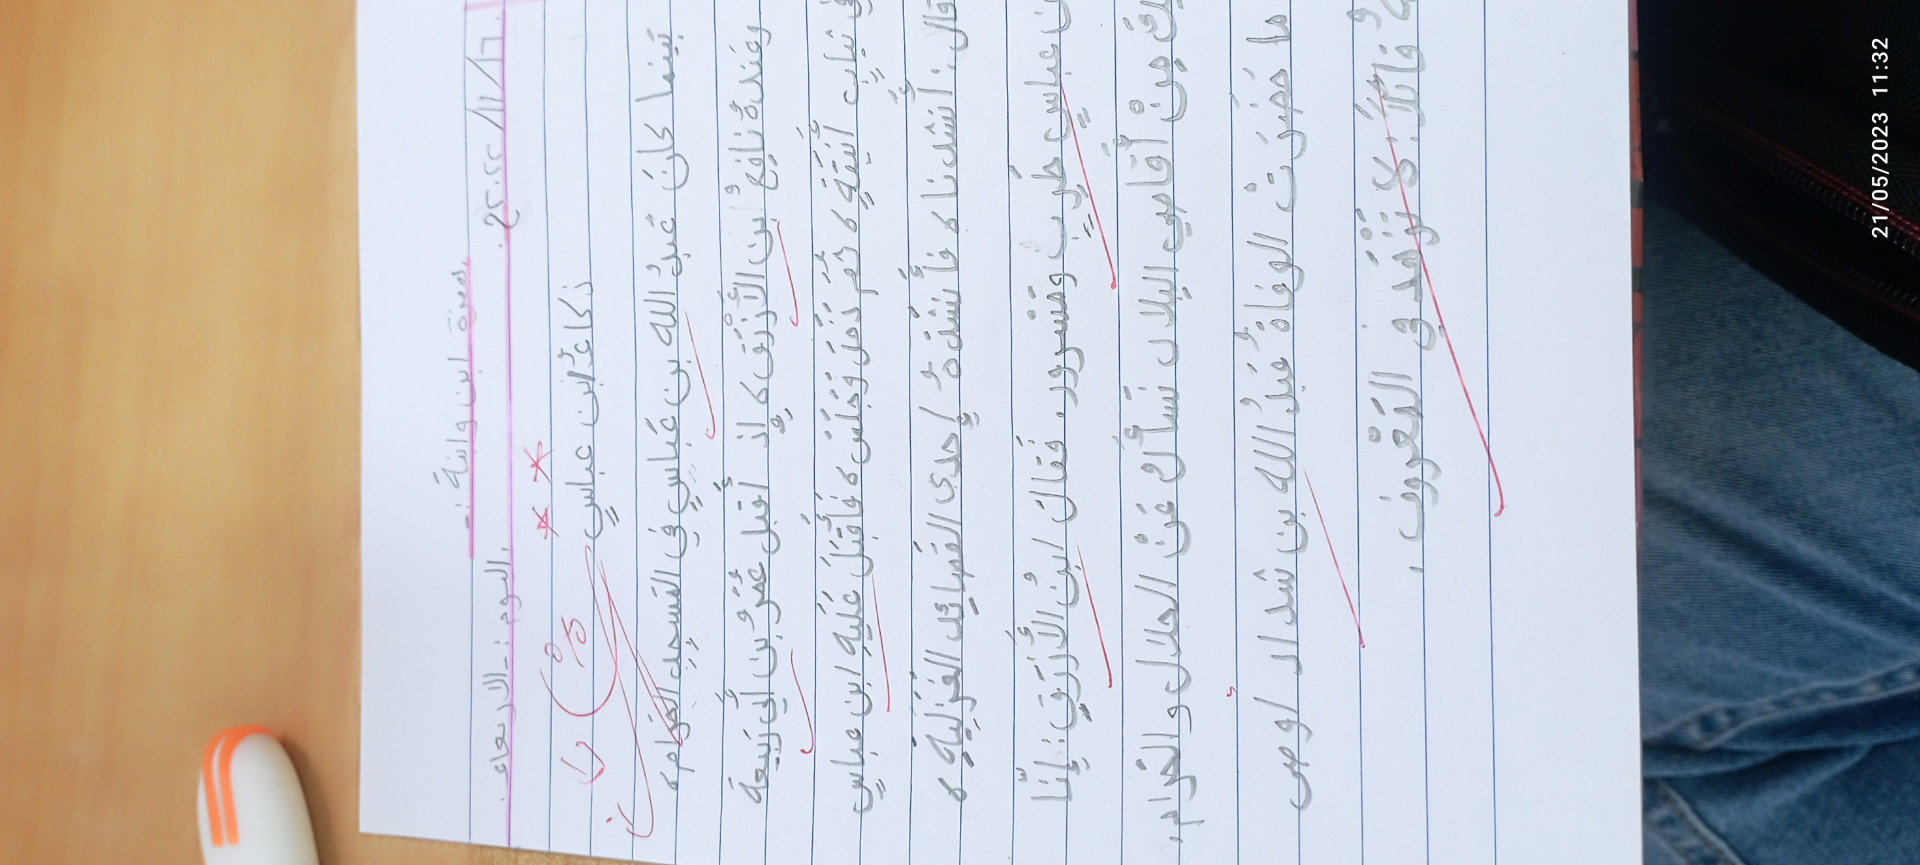 همزة ابن وابنة :-
اليوم :- الاربعاء. ٢٠٢٢/١١/١٦.
ذكاءُ ابن عباسٍ
بَينما كانَ عَبدُ الله بن عَباسٍ في المَسجِدِ الحَرامِ،
وعَندهُ نافِعُ ابن الأَزْرَق، إِذ أَقبل عُمَرُ بن أَبي رَبيعَة
في ثيابٍ أَنيقَةٍ، ثم دَخَلَ وَجَلَسَ، فأَقبَلَ عَلَيهِ ابن عباسٍ
قال: أَنشدنا، فأَنشَدَهُ إِحدى القَصائِد الغَزَليةِ،
ابن عباسٍ طَرِبٌ ومَسرور، فَقال ابنُ الأَزرَقِ: إِنّا
إليكَ مِنْ أَقاصي البلاد نَسأَلُكَ عَنْ الحلال والحَرام،
ما حَضَرَتْ الوفاةُ عَبدُ الله بن شداد اوصى
قائلاً: لا تَزْهَد في المَعْروف.
21/05/2023 11:32